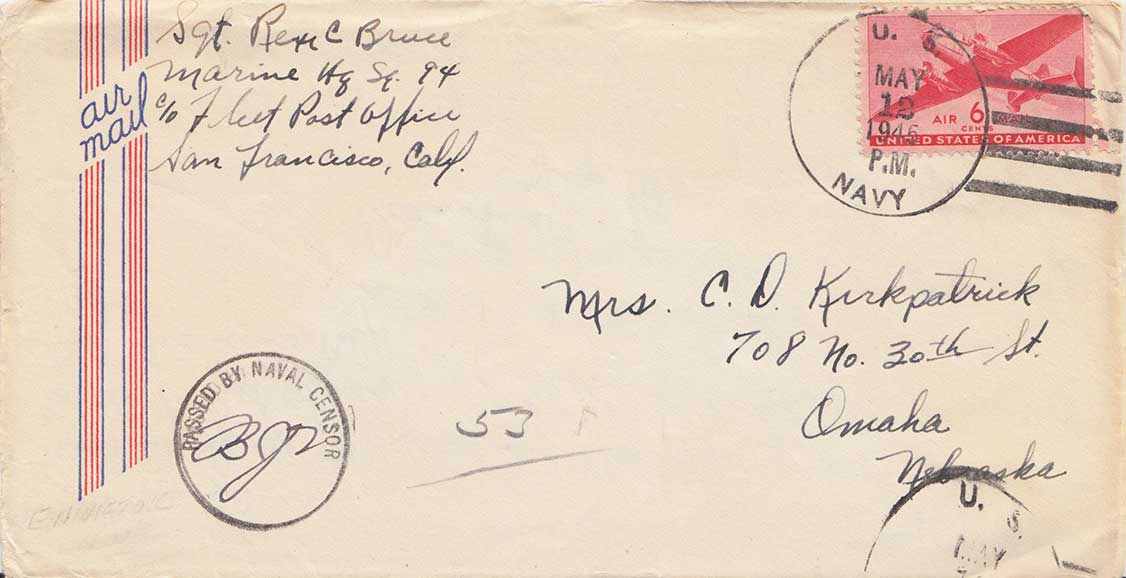 Sgt. Rex C Bruce
Marine Hq Sq. 94
c/o Fleet Post Office
San Francisco, Calif.
air
mail
U. S.
MAY
12
1945
P.M.
NAVY
AIR 6 MAIL
CENTS
UNITED STATES OF AMERICA
Mrs. C. D. Kirkpatrick
708 No. 30th St.
Omaha
Nebraska
PASSED BY NAVAL CENSOR
53
U. S.
MAY